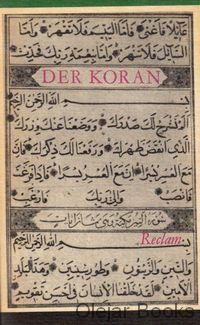 عائلا فاغنى فاما اليتيم فلا تقهر واما
السائل فلا تنهر واما بنعمة ربك فحدث
DER KORAN
بسم الله الرحمن الرحيم
الم نشرح لك صدرك ووضعنا عنك وزرك
الذي انقض ظهرك ورفعنا لك ذكرك فان
مع العسر يسرا ان مع العسر يسرا فاذا فرغت
فانصب والى ربك فارغب
Reclam
بسم الله الرحمن الرحيم
والتين والزيتون وطور سينين وهذا البلد
الامين لقد خلقنا الانسان في احسن تقويم
Olejar Books